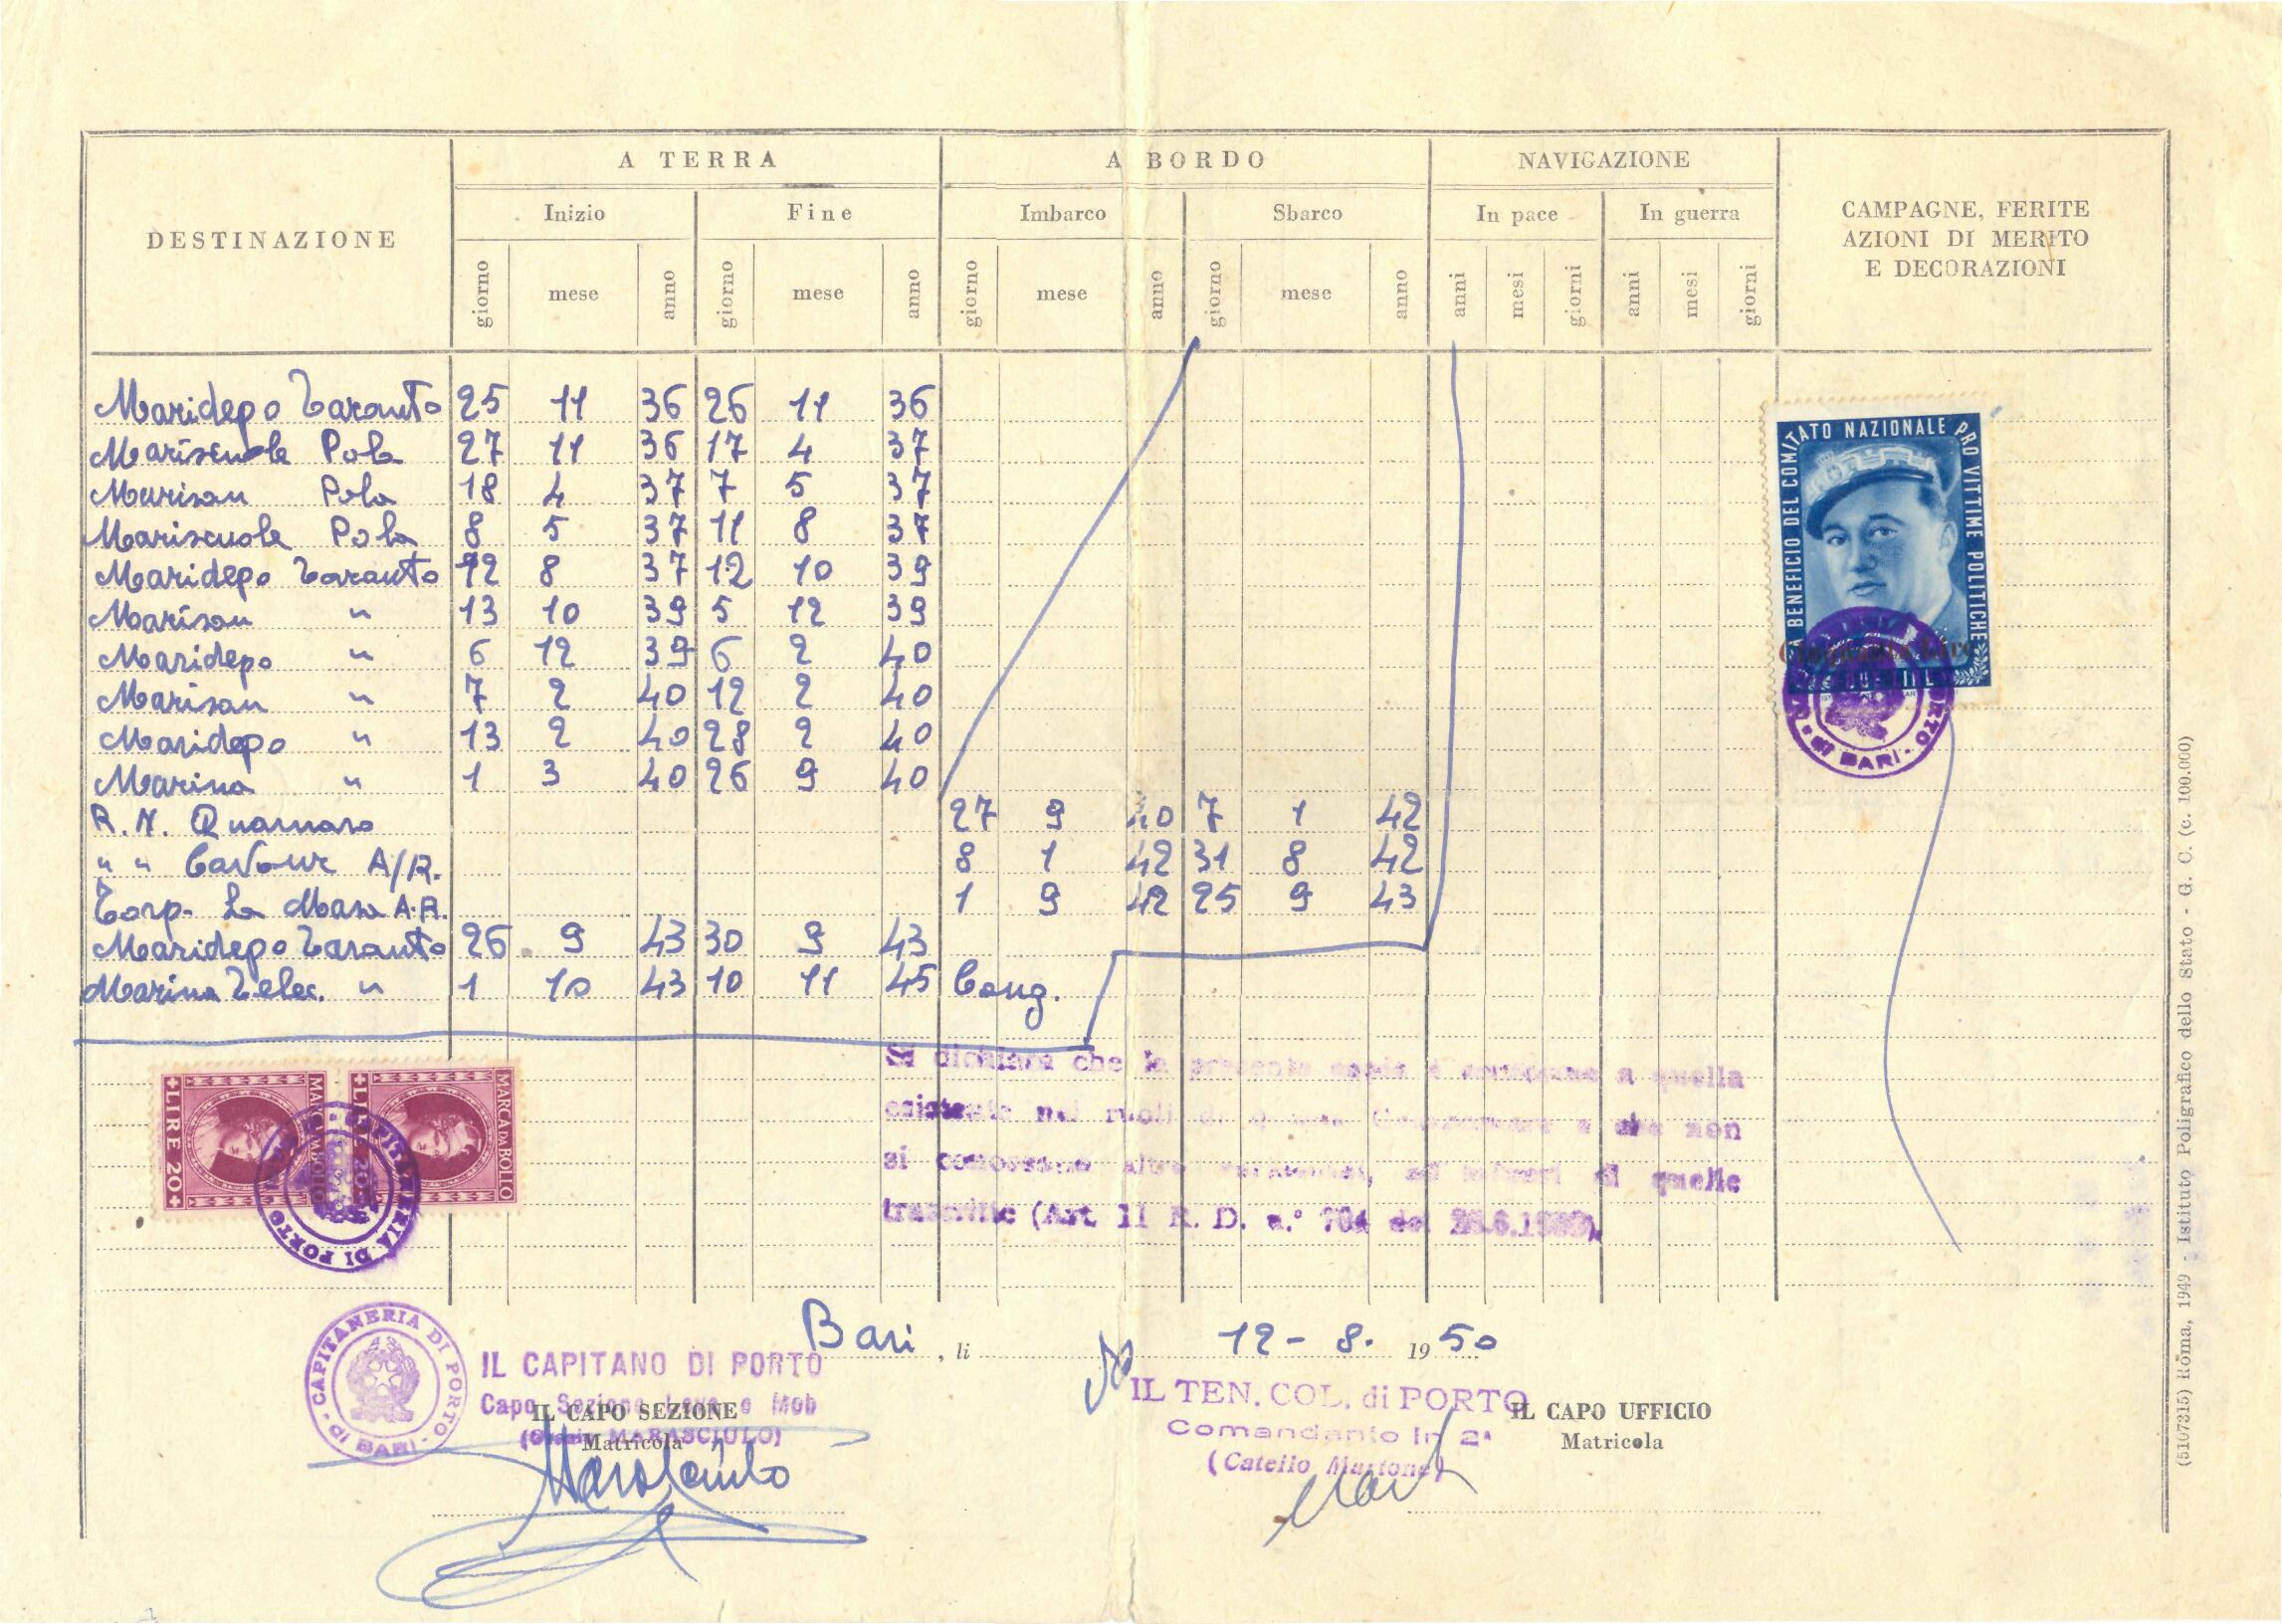 DESTINAZIONE
A TERRA
A BORDO
NAVIGAZIONE
CAMPAGNE, FERITE
AZIONI DI MERITO
E DECORAZIONI
Inizio
Fine
Imbarco
Sbarco
In pace
In guerra
giorno mese anno giorno mese anno giorno mese anno giorno mese anno anni mesi giorni anni mesi giorni
Maridepo Taranto 25 11 36 26 11 36
Mariscuole Pola 27 11 36 17 4 37
Marisan Pola 18 4 37 7 5 37
Mariscuole Pola 8 5 37 11 8 37
Maridepo Taranto 12 8 37 12 10 39
Marisan " 13 10 39 5 12 39
Maridepo " 6 12 39 6 2 40
Marisan " 7 2 40 12 2 40
Maridepo " 13 2 40 28 2 40
Marina " 1 3 40 26 9 40
R. N. Quarnaro 27 9 40 7 1 42
" " Cavour A/R. 8 1 42 31 8 42
Torp. La Masa A.R. 1 9 42 25 9 43
Maridepo Taranto 26 9 43 30 9 43
Marina Telec. " 1 10 43 10 11 45 Cong.
A BENEFICIO DEL COMITATO NAZIONALE PRO VITTIME POLITICHE
di BARI
MARCA DA BOLLO
LIRE 20
MARCA DA BOLLO
LIRE 20
CAPITANERIA DI PORTO
Si dichiara che la presente copia è conforme a quella
esistente nei ruoli di questa e che non
si conoscono altre ad quelle
trascritte (Art. 11 R. D. n.° 704 del
Bari, li 12-8. 1950
CAPITANERIA DI PORTO di BARI
IL CAPITANO DI PORTO
Capo Sezione Leva e Mob
IL CAPO SEZIONE
MARASCIULO)
Matricola
Marasciulo
IL TEN. COL. di PORTO
Comandante in 2ª
(Catello Martone)
IL CAPO UFFICIO
Matricola
(5107315) Roma, 1949 - Istituto Poligrafico dello Stato - G. C. (c. 100.000)